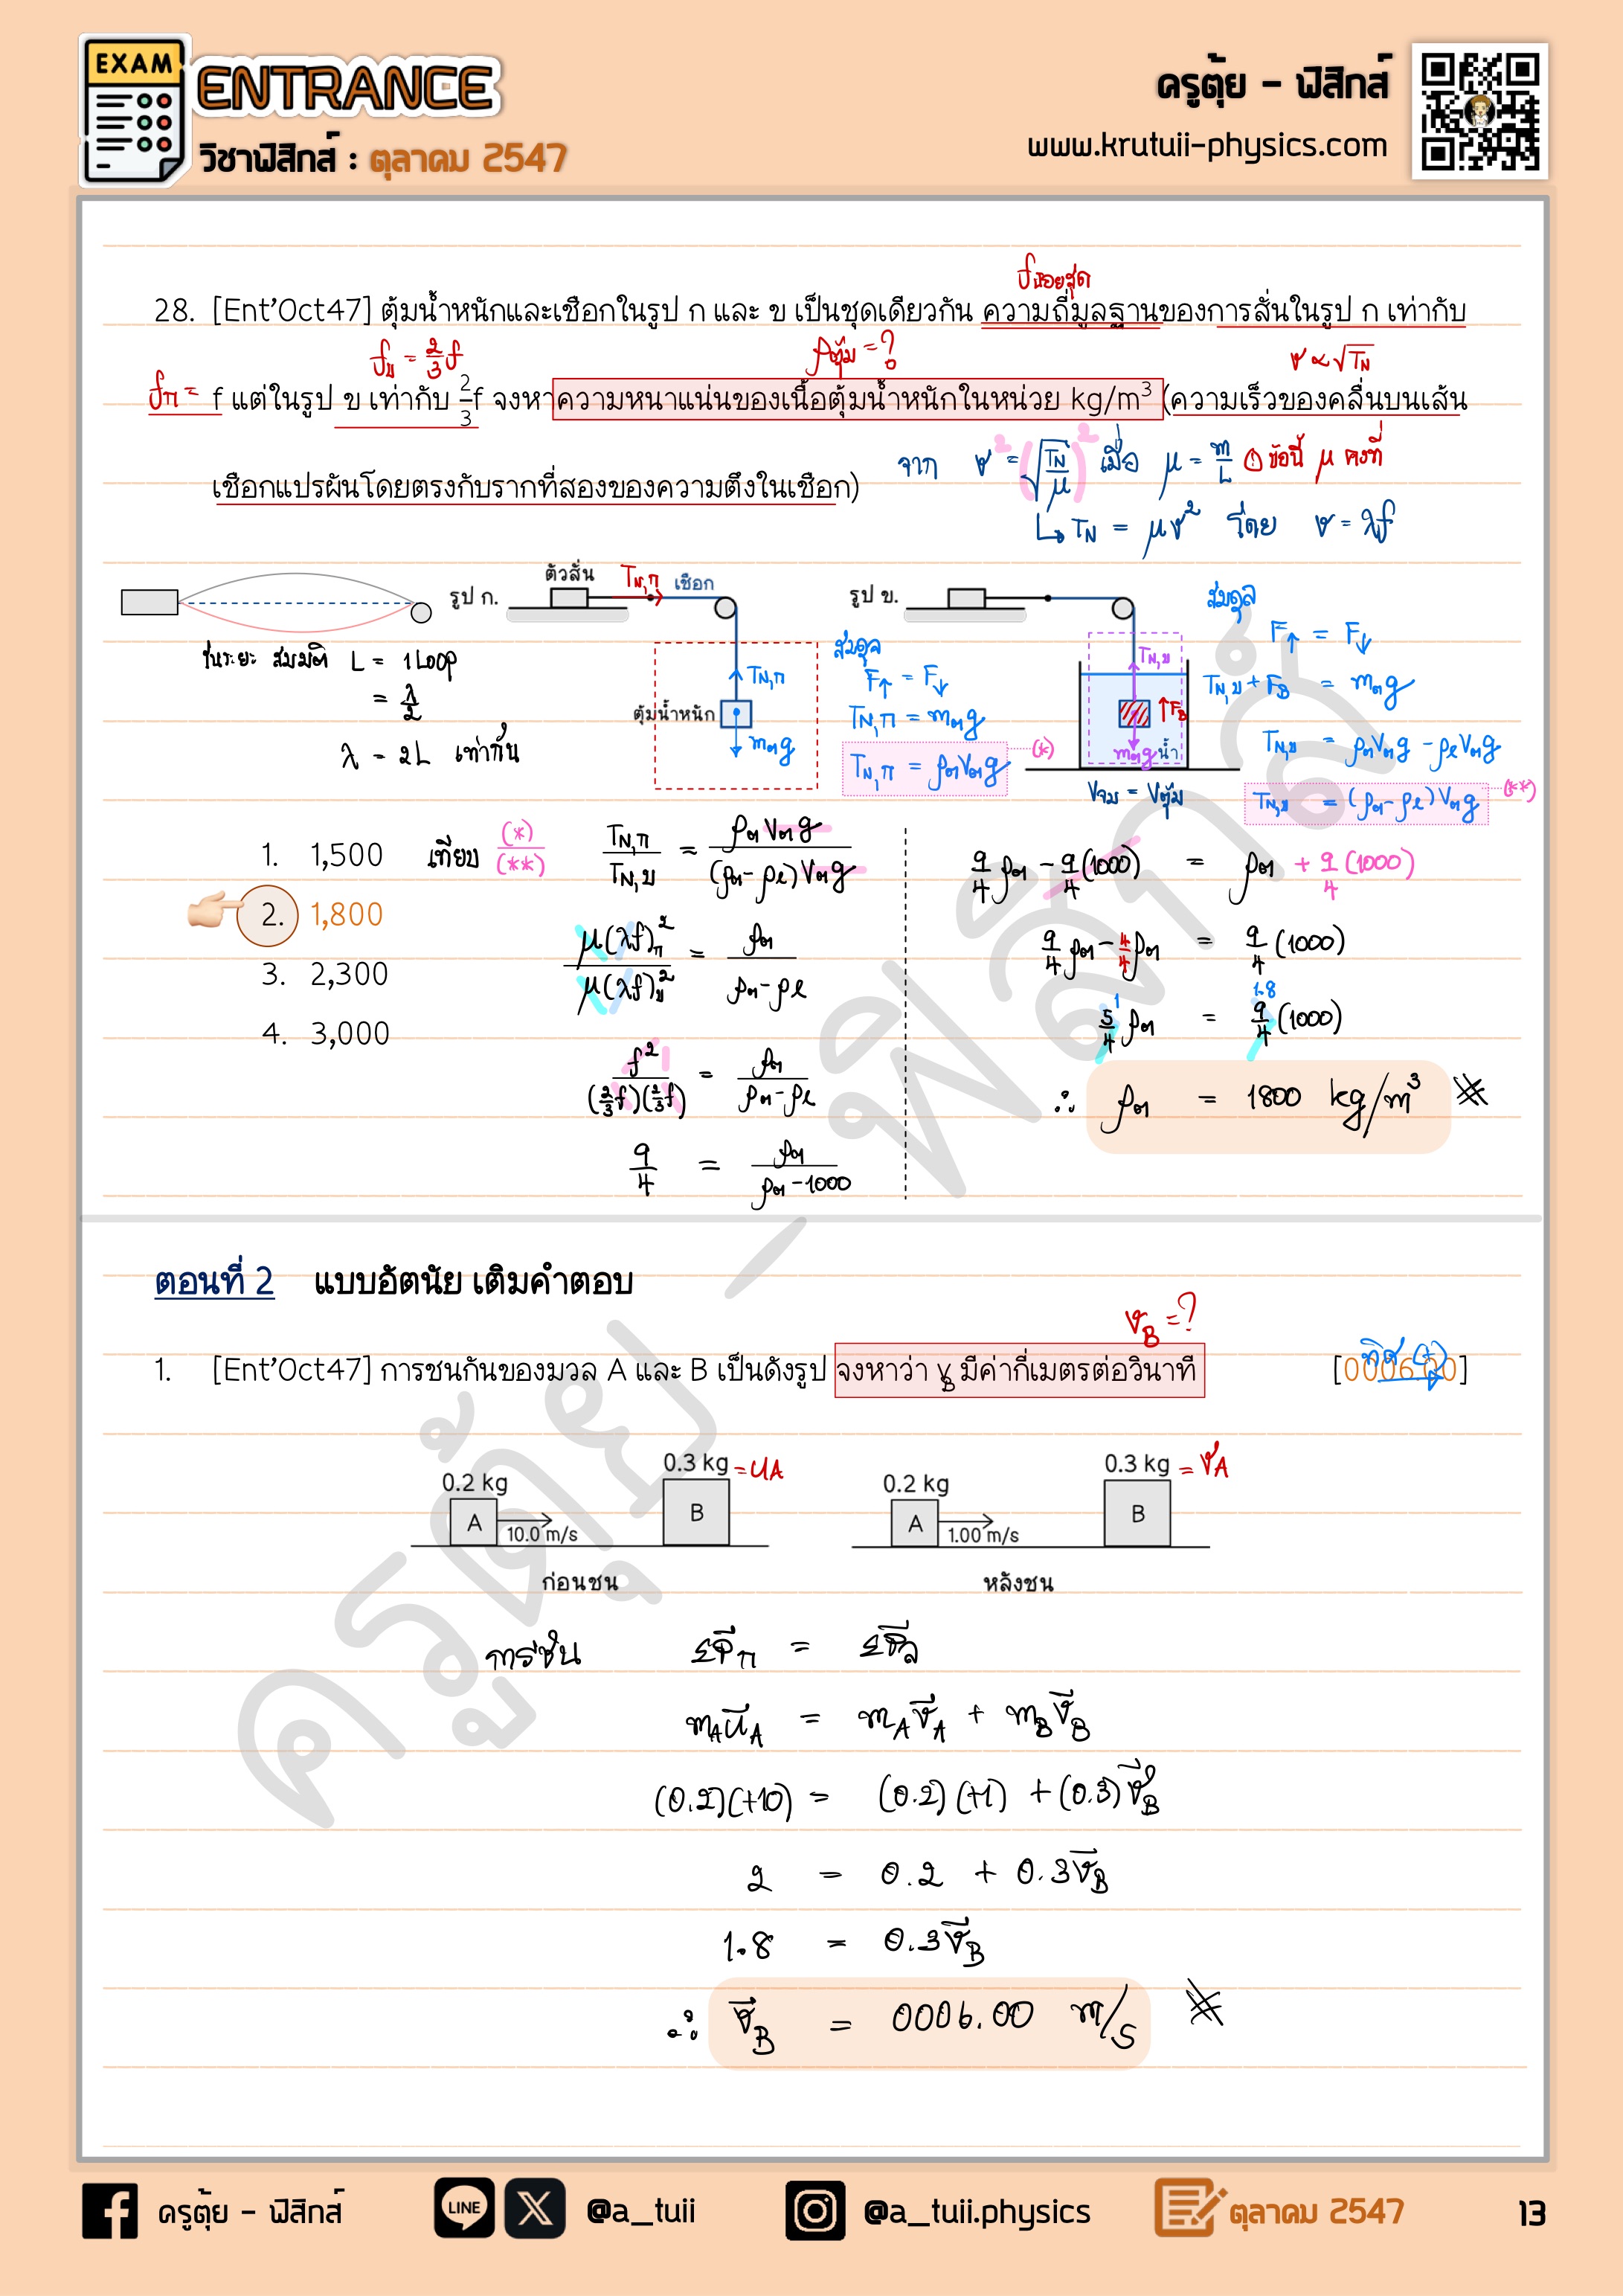 EXAM
ENTRANCE
วิชาฟิสิกส์ : ตุลาคม 2547
ครูตุ้ย - ฟิสิกส์
www.krutuii-physics.com
fน้อยสุด
28. [Ent'Oct47] ตุ้มน้ำหนักและเชือกในรูป ก และ ข เป็นชุดเดียวกัน ความถี่มูลฐานของการสั่นในรูป ก เท่ากับ
fข = 2/3 f ρตุ้ม = ? v ∝ √TN
fก = f แต่ในรูป ข เท่ากับ 2/3 f จงหาความหนาแน่นของเนื้อตุ้มน้ำหนักในหน่วย kg/m³ (ความเร็วของคลื่นบนเส้น
เชือกแปรผันโดยตรงกับรากที่สองของความตึงในเชือก)
จาก v² = (√(TN/μ))² เมื่อ μ = m/L ! ข้อนี้ μ คงที่
↳ TN = μv² โดย v = λf
รูป ก. ตัวสั่น TN,ก เชือก
ตุ้มน้ำหนัก TN,ก mตg
รูป ข. TN,ข FB mตg น้ำ
Vจม = Vตุ้ม
ในระยะ สมมติ L = 1 Loop
= λ/2
λ = 2L เท่ากัน
สมดุล
F↑ = F↓
TN,ก = mตg
TN,ก = ρตVตg (*)
สมดุล
F↑ = F↓
TN,ข + FB = mตg
TN,ข = ρตVตg - ρlVตg
TN,ข = (ρต - ρl)Vตg (**)
1. 1,500
2. 1,800
3. 2,300
4. 3,000
เทียบ (*)/(**) TN,ก/TN,ข = ρตVตg/(ρต - ρl)Vตg
μ(λf)ก²/μ(λf)ข² = ρต/ρต - ρl
f²/(2/3 f)(2/3 f) = ρต/ρต - ρl
9/4 = ρต/ρต - 1000
9/4 ρต - 9/4 (1000) = ρต + 9/4 (1000)
9/4 ρต - 4/4 ρต = 9/4 (1000)
1 1.8
5/4 ρต = 9/4 (1000)
∴ ρต = 1800 kg/m³
ตอนที่ 2 แบบอัตนัย เติมคำตอบ
vB = ?
1. [Ent'Oct47] การชนกันของมวล A และ B เป็นดังรูป จงหาว่า vB มีค่ากี่เมตรต่อวินาที [0006.00]
ทิศ (+)
0.2 kg 0.3 kg = uA
A 10.0 m/s B
ก่อนชน
0.2 kg 0.3 kg = vA
A 1.00 m/s B
หลังชน
การชน ΣP̄ก = ΣP̄ล
mAūA = mAv̄A + mBv̄B
(0.2)(+10) = (0.2)(+1) + (0.3)v̄B
2 = 0.2 + 0.3v̄B
1.8 = 0.3v̄B
∴ v̄B = 0006.00 m/s
ครูตุ้ย - ฟิสิกส์
ครูตุ้ย - ฟิสิกส์
LINE
@a_tuii
@a_tuii.physics
ตุลาคม 2547
13